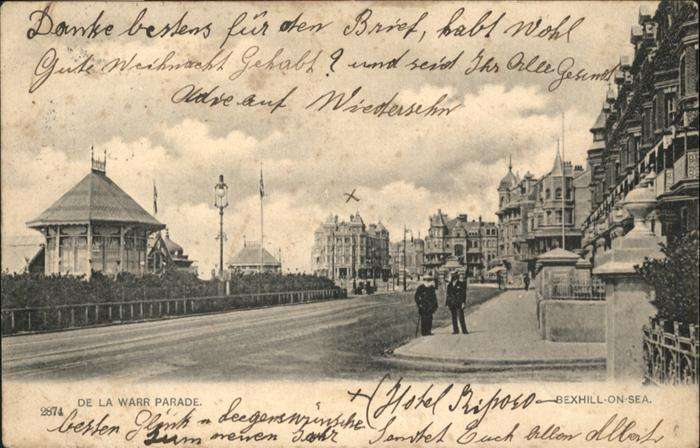 Danke bestens für den Brief, habt Wohl
Gute Weihnacht Gehabt? und seid Ihr Alle Gesund
Adie auf Wiedersehn
x
2874 DE LA WARR PARADE. BEXHILL-ON-SEA.
x (Hotel Riposo
besten Glück - Seegenswünsche
zum neuen Jahr Sendet Euch Allen Albert